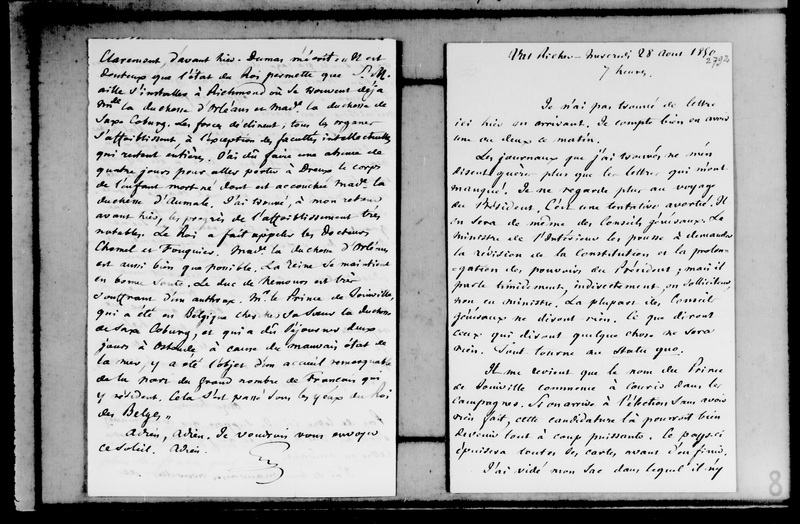 Claremont, d'avant hier. Dumas m'écrit : « Il est
douteux que l'état du Roi permette que S. M.
aille s'installer à Richmond où se trouvent déjà
Mde la duchesse d'Orléans et Made la duchesse de
Saxe Coburg. Les forces déclinent ; tous les organes
s'affaiblissent, à l'exception des facultés intellectuelles
qui restent entières. J'ai dû faire une absence de
quatre jours pour aller porter à Dreux le corps
de l'enfant mort né dont est accouchée Made la
duchesse d'Aumale. J'ai trouvé, à mon retour
avant hier, les progrès de l'affaiblissement très
notables. Le Roi a fait appeler les Docteurs
Chomel et Fouquier. Made la duchesse d'Orléans
est aussi bien que possible. La Reine se maintient
en bonne santé. Le duc de Nemours est très
souffrant d'un anthrax. Mr le Prince de Joinville,
qui a été en Belgique chez sa sœur la duchesse
de Saxe Coburg, et qui a dû séjourner deux
jours à Ostende, à cause du mauvais état de
la mer, y a été l'objet d'un accueil remarquable
de la part du grand nombre de Français qui
y résident. Cela s'est passé sous les yeux du Roi
des Belges »
Adieu, Adieu. Je voudrais vous envoyer
ce soleil. Adieu.
Val Richer - Mercredi 28 Août 1850
2792
7 heures.
Je n'ai pas trouvé de lettre
ici hier en arrivant. Je compte bien en avoir
une ou deux ce matin.
Les journaux que j'ai trouvés ne m'en
disent guère plus que les lettres qui m'ont
manqué. Je ne regarde plus au voyage
du Président. C'est une tentative avortée. Il
en sera de même des Conseils généraux. Le
ministre de l'Intérieur les pousse à demander
la révision de la Constitution et la prolon-
gation des pouvoirs du Président ; mais il
parle timidement, indirectement, en solliciteur,
non en ministre. La plupart des Conseils
généraux ne diront rien. Ce que diront
ceux qui diront quelque chose ne sera
rien. Tout tourne au statu quo.
Il me revient que le nom du Prince
de Joinville commence à courir dans les
campagnes. Si on arrive à l'élection sans avoir
rien fait, cette candidature là pourroit bien
devenir tout à coup puissante. Ce pays-ci
épuisera toutes les cartes avant d'en finir.
J'ai vidé mon sac dans lequel il n'y
8